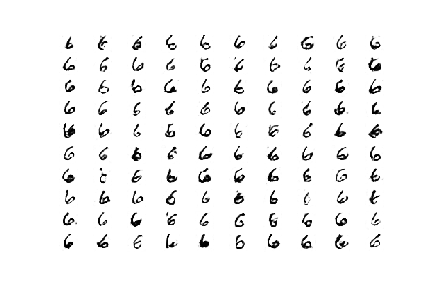 6 6 6 6 6 6 6 6 6 6
6 6 6 6 6 6 6 6 6 6
6 6 6 6 6 6 6 6 6 6
6 6 6 6 6 6 6 6 6 6
6 6 6 6 6 6 6 6 6 6
6 6 6 6 6 6 6 6 6 6
6 6 6 6 6 6 6 6 6
6 6 6 6 6 6 6 6 6 6
6 6 6 6 6 6 6 6 6 6
6 6 6 6 6 6 6 6 6 6